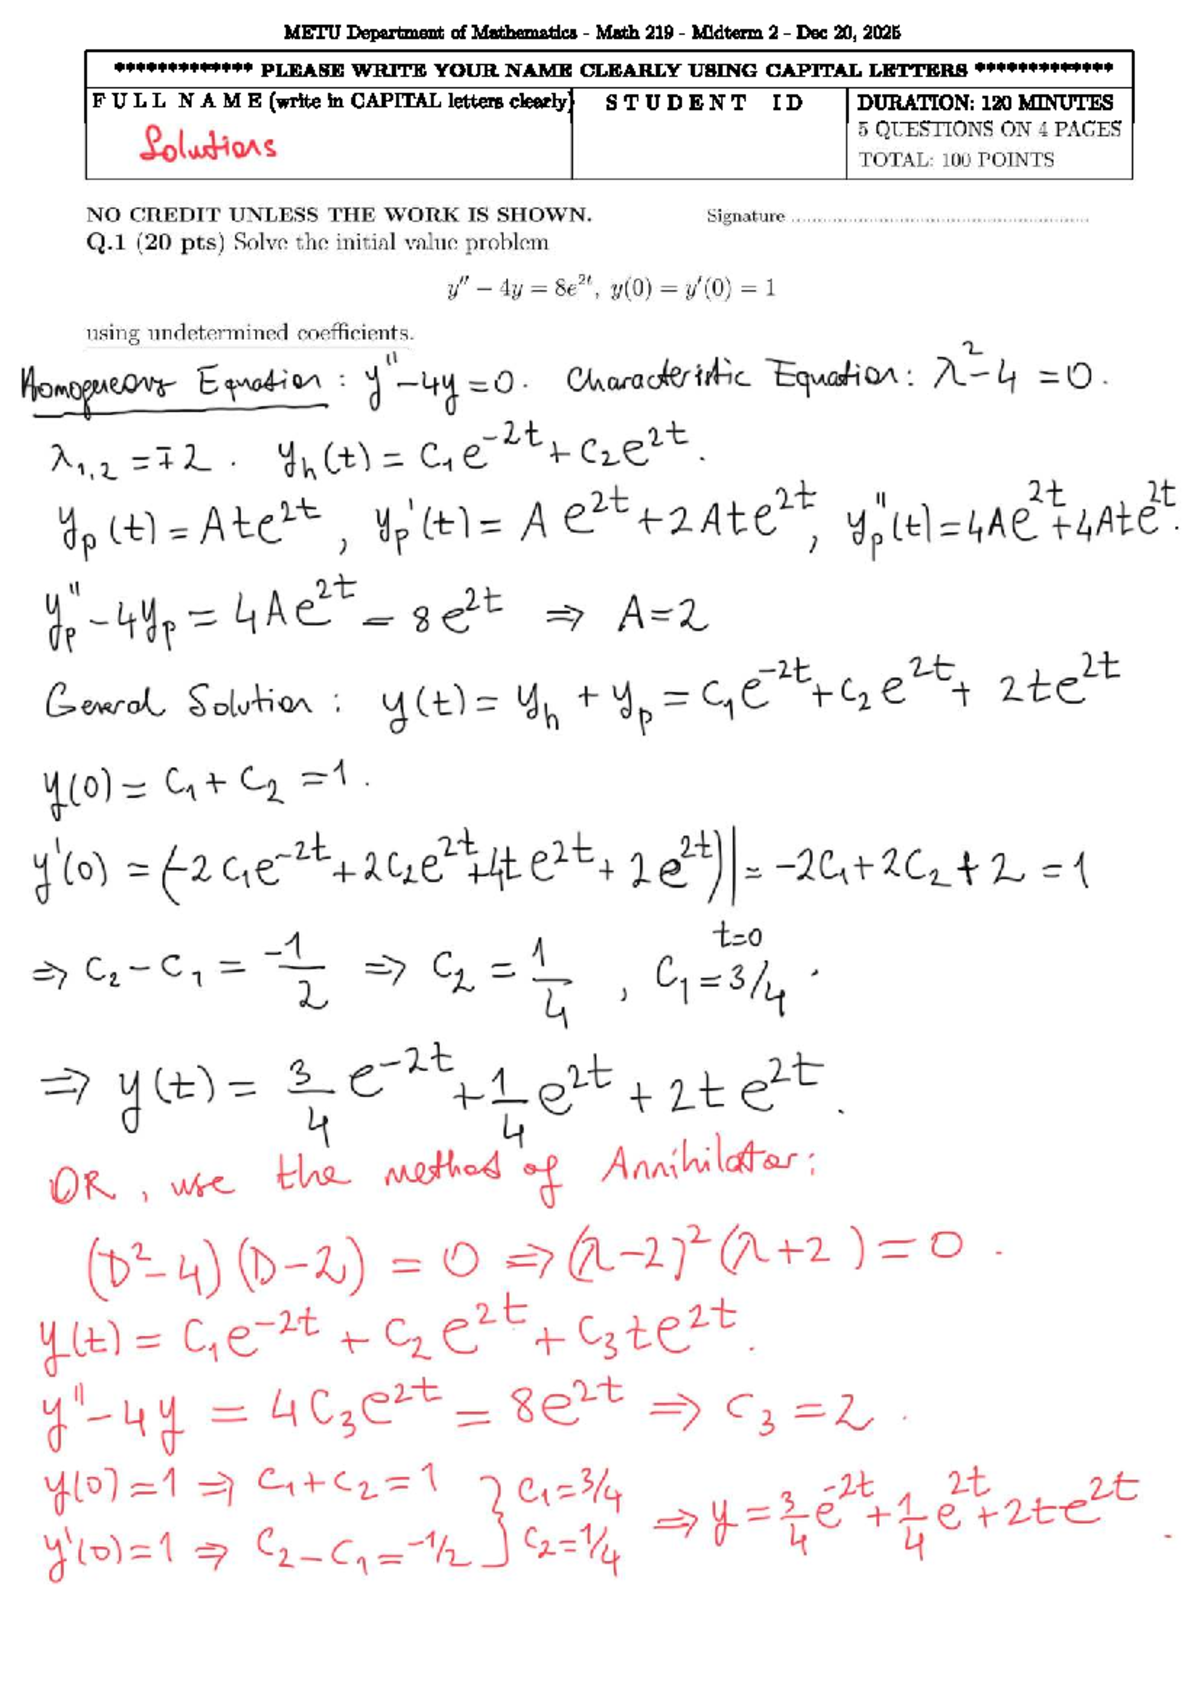 METU Department of Mathematics - Math 219 - Midterm 2 - Dec 20, 2025
************* PLEASE WRITE YOUR NAME CLEARLY USING CAPITAL LETTERS *************
F U L L N A M E (write in CAPITAL letters clearly) S T U D E N T I D DURATION: 120 MINUTES
Solutions
5 QUESTIONS ON 4 PAGES
TOTAL: 100 POINTS
NO CREDIT UNLESS THE WORK IS SHOWN. Signature ..........................................................
Q.1 (20 pts) Solve the initial value problem
y″ − 4y = 8e^{2t}, y(0) = y′(0) = 1
using undetermined coefficients.
Homogueous Equation : y″−4y=0. Characteristic Equation: λ²−4=0.
λ_{1,2} = ∓2 . y_h(t) = c₁e^{−2t} + c₂e^{2t}.
y_p(t) = Ate^{2t}, y_p′(t) = Ae^{2t}+2Ate^{2t}, y_p″(t)=4Ae^{2t}+4Ate^{2t}.
y_p″−4y_p = 4Ae^{2t} = 8e^{2t} ⇒ A=2
General Solution : y(t) = y_h + y_p = c₁e^{−2t}+c₂e^{2t}+ 2te^{2t}
y(0) = c₁+c₂ =1.
y′(0) = (−2c₁e^{−2t}+2c₂e^{2t}+4te^{2t}+2e^{2t})| = −2c₁+2c₂+2 =1
t=0
⇒ c₂−c₁ = −1/2 ⇒ c₂ = 1/4 , c₁=3/4 .
⇒ y(t) = 3/4 e^{−2t} + 1/4 e^{2t} + 2te^{2t}.
OR, use the method of Annihilator:
(D²−4)(D−2) = 0 ⇒ (λ−2)²(λ+2) = 0 .
y(t) = c₁e^{−2t} + c₂e^{2t} + c₃te^{2t}.
y″−4y = 4c₃e^{2t} = 8e^{2t} ⇒ c₃ = 2 .
y(0)=1 ⇒ c₁+c₂=1 } c₁=3/4
y′(0)=1 ⇒ c₂−c₁=−1/2 } c₂=1/4 ⇒ y = 3/4 e^{−2t} + 1/4 e^{2t}+2te^{2t} .